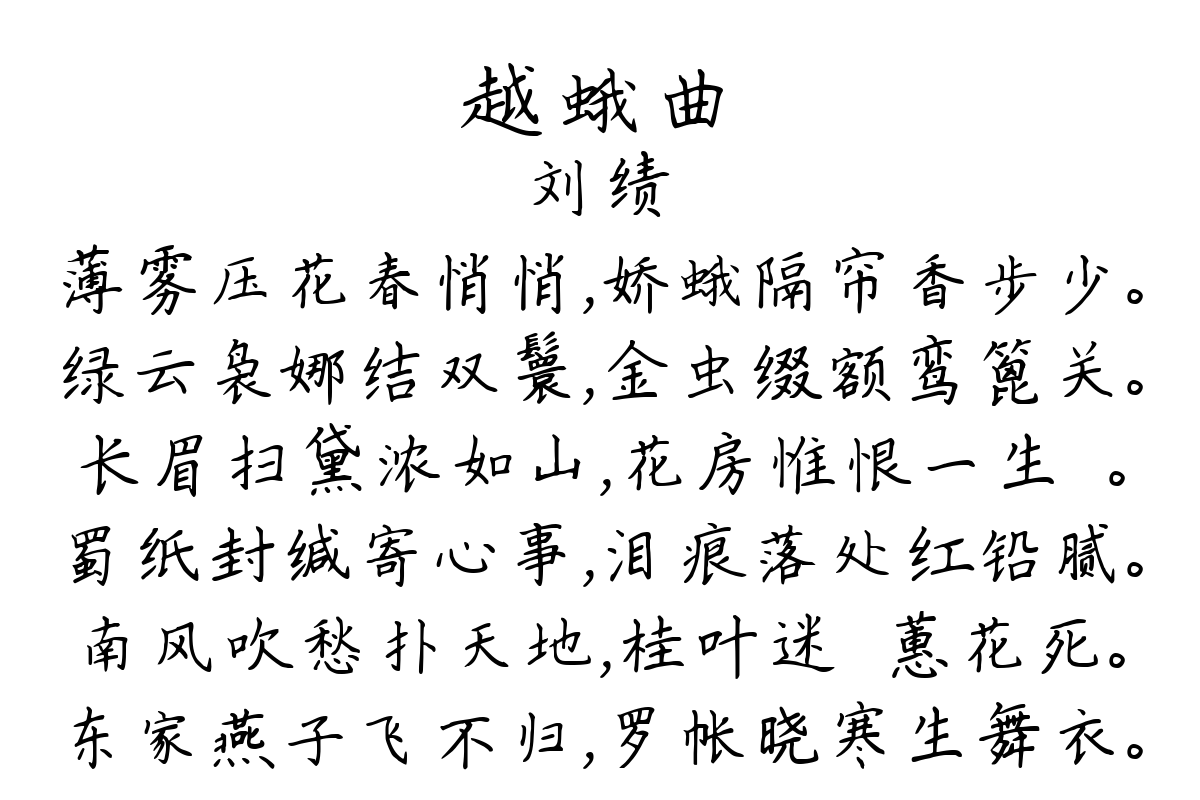 越蛾曲
刘绩
薄雾压花春悄悄,娇蛾隔帘香步少。
绿云袅娜结双鬟,金虫缀额鸾篦关。
长眉扫黛浓如山,花房惟恨一生 。
蜀纸封缄寄心事,泪痕落处红铅腻。
南风吹愁扑天地,桂叶迷 蕙花死。
东家燕子飞不归,罗帐晓寒生舞衣。